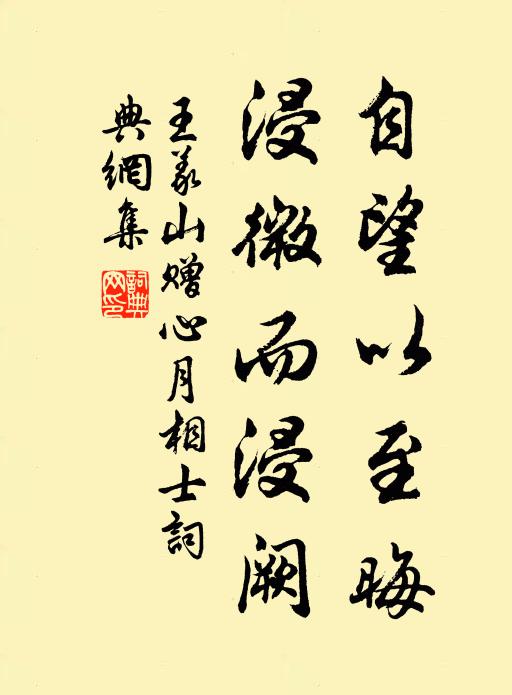 自望以至晦
浸微而浸阙
王义山赠心月相士词
典網集
詞典網印